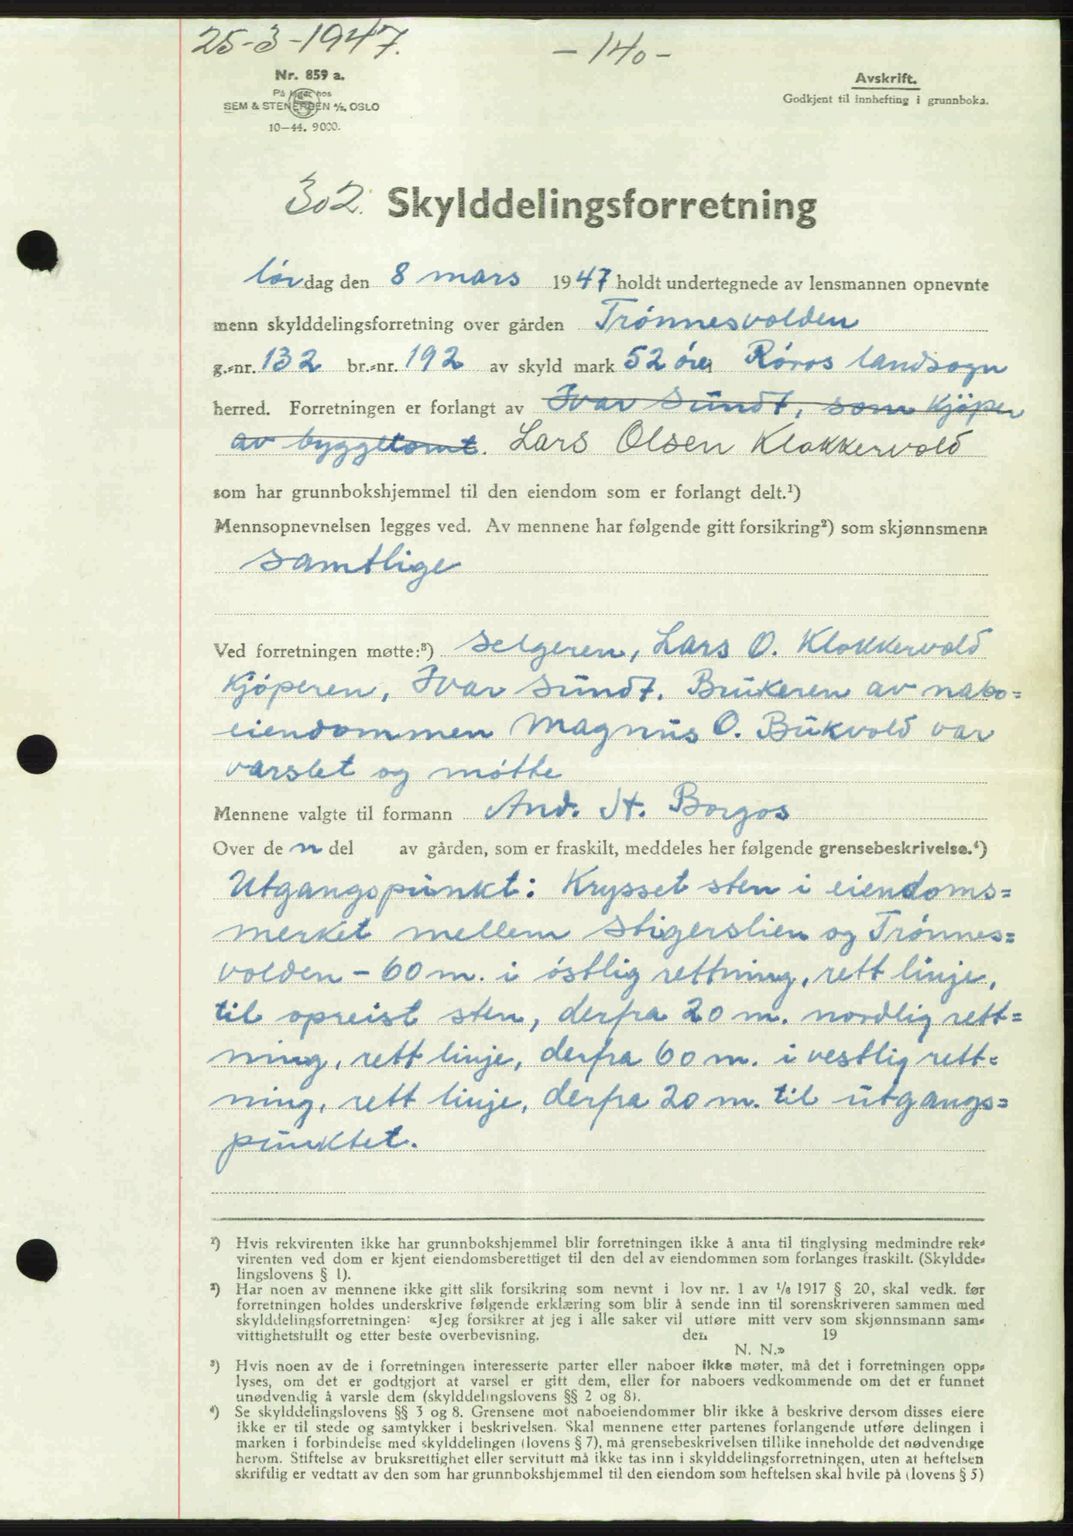 25-3-1947.
- 140 -
Nr. 859 a.
På lager hos
SEM & STENERSEN A/S, OSLO
10—44. 9000.
Avskrift.
Godkjent til innhefting i grunnboka.
302. Skylddelingsforretning
lørdag den 8 mars 1947 holdt undertegnede av lensmannen opnevnte
menn skylddelingsforretning over gården Trønnesvolden
g.-nr. 132 br.-nr. 192 av skyld mark 52 øre Røros landsogn
herred. Forretningen er forlangt av Ivar Sundt, som kjøper
av byggetomt. Lars Olsen Klokkervold
som har grunnbokshjemmel til den eiendom som er forlangt delt.¹)
Mennsopnevnelsen legges ved. Av mennene har følgende gitt forsikring²) som skjønnsmenn
samtlige
Ved forretningen møtte:³) Selgeren, Lars O. Klokkervold
kjøperen, Ivar Sundt. Brukeren av nabo=
eiendommen Magnus O. Bukvold var
varslet og møtte
Mennene valgte til formann And. H. Borgos
Over den del av gården, som er fraskilt, meddeles her følgende grensebeskrivelse.⁴)
Utgangspunkt: Krysset sten i eiendoms=
merket mellem Stigerslien og Trønnes=
volden - 60 m. i østlig rettning, rett linje,
til opreist sten, derfra 20 m. nordlig rett=
ning, rett linje, derfra 60 m. i vestlig rett=
ning, rett linje, derfra 20 m. til utgangs=
punktet.
¹) Hvis rekvirenten ikke har grunnbokshjemmel blir forretningen ikke å anta til tinglysing medmindre rek-
virenten ved dom er kjent eiendomsberettiget til den del av eiendommen som forlanges fraskilt. (Skyldde-
lingslovens § 1).
²) Har noen av mennene ikke gitt slik forsikring som nevnt i lov nr. 1 av 1/6 1917 § 20, skal vedk. før
forretningen holdes underskrive følgende erklæring som blir å sende inn til sorenskriveren sammen med
skylddelingsforretningen: «Jeg forsikrer at jeg i alle saker vil utføre mitt verv som skjønnsmann sam-
vittighetsfullt og etter beste overbevisning. den 19
N. N.»
³) Hvis noen av de i forretningen interesserte parter eller naboer ikke møter, må det i forretningen opp-
lyses, om det er godtgjort at varsel er gitt dem, eller for naboers vedkommende om det er funnet
unødvendig å varsle dem (skylddelingslovens §§ 2 og 8).
⁴) Se skylddelingslovens §§ 3 og 8. Grensene mot naboeiendommer blir ikke å beskrive dersom disses eiere
ikke er til stede og samtykker i beskrivelsen. Skal mennene etter partenes forlangende utføre delingen i
marken i forbindelse med skylddelingen (lovens § 7), må grensebeskrivelsen tillike inneholde det nødvendige
herom. Stiftelse av bruksrettighet eller servitutt må ikke tas inn i skylddelingsforretningen, uten at heftelsen
skriftlig er vedtatt av den som har grunnbokshjemmel til den eiendom som heftelsen skal hvile på (lovens § 5)